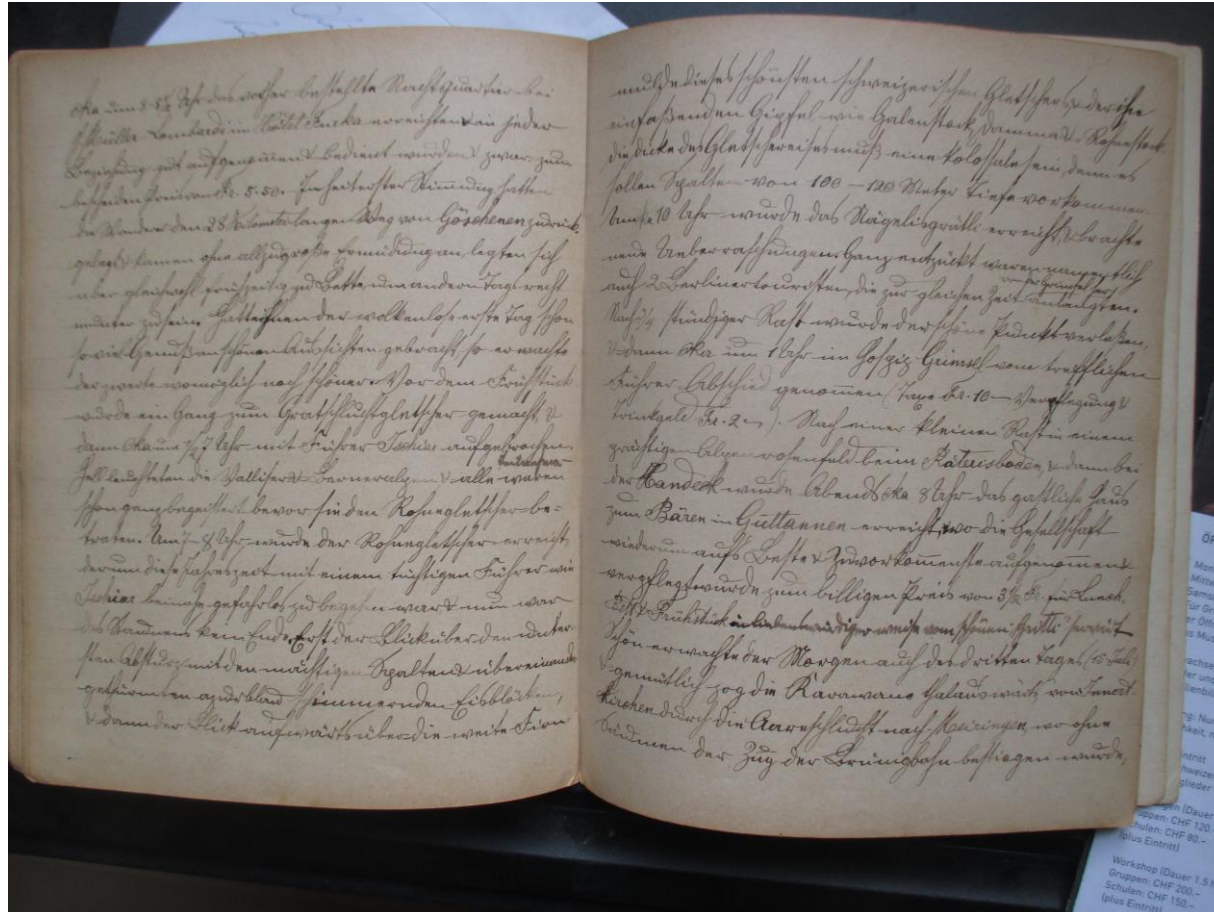 cka um 8-8½ Uhr das vorher bestellte Nachtquartier bei
Müller Lombardi im Hôtel Furka erreichten & in jeder
Beziehung gut aufgenommen & bedient wurden & zwar zum
bescheiden Preis von Fr. 5.50. In heiterster Stimmung hatten
die Wanderer den 28 Kilometer langen Weg von Göschenen zurück
gelegt & kamen ohne allzugroße Ermüdung an, legten sich
aber gleichwohl frühzeitig zu Bette, um andern Tags recht
munter zu sein. Hatte ihnen der wolkenlose erste Tag schon
so viel Genuß an schönen Aussichten gebracht, so erwachte
der zweite womöglich noch schöner. Vor dem Frühstück
wurde ein Gang zum Gratschluchtgletscher gemacht, &
dann cka um ½7 Uhr mit Führer aufgebrochen.
Hell leuchteten die Walliser & Berneralpen & alle waren
schon ganz begeistert bevor sie den Rohnegletscher be-
traten. Um 7-8 Uhr wurde der Rohnegletscher erreicht,
der um diese Jahreszeit mit einem tüchtigen Führer wie
beinahe gefahrlos zu begehen war & nun war
des Staunens kein Ende. Erst der Blick über den unter-
sten Absturz mit den mächtigen Spalten & übereinander
getürmten azurblau schimmernden Eisblöcken,
& dann der Blick aufwärts über die weite Firn
mulde dieses schönsten schweizerischen Gletschers, & der ihn
einfaßenden Gipfel wie Galenstock, Damma & Rohnestock
die dicke des Gletschereises muß eine kolossale sein, denn es
sollen Spalten von 100 – 120 Meter tiefe vorkommen.
Um 10 Uhr wurde das Nägelisgrätli erreicht, & brachte
neue Ueberraschungen. Ganz entzückt waren namentlich
von der Grimsel her
auch 2 Berlinertouristen, die zur gleichen Zeit anlangten.
Nach stündiger Rast wurde der schöne Punkt verlaßen,
& dann cka um 1 Uhr im Hospiz Grimsel vom trefflichen
Führer Abschied genommen (Taxe Fr. 10 – Verpflegung &
Trinkgeld Fr. 2 – ). Nach einer kleinen Rast in einem
prächtigen Alpenrosenfeld beim Räterisboden, & dann bei
der Handeck wurde Abends cka 8 Uhr das gastliche Haus
zum Bären in Guttannen erreicht, wo die Gesellschaft
wiederum aufs Beste & Zuvorkommenste aufgenommen &
verpflegt wurde zum billigen Preis von 3½ Fr. für
Bett & Frühstück in liebenswürdiger weise vom schönen "Gutti" serviert
Schön erwachte der Morgen auch des dritten Tages (15 Juli)
& gemütlich zog die Karawane thalauswärts, von Innert-
kirchen durch die Aareschlucht nach Meiringen, wo ohne
säumen der Zug der Brünigbahn bestiegen wurde,